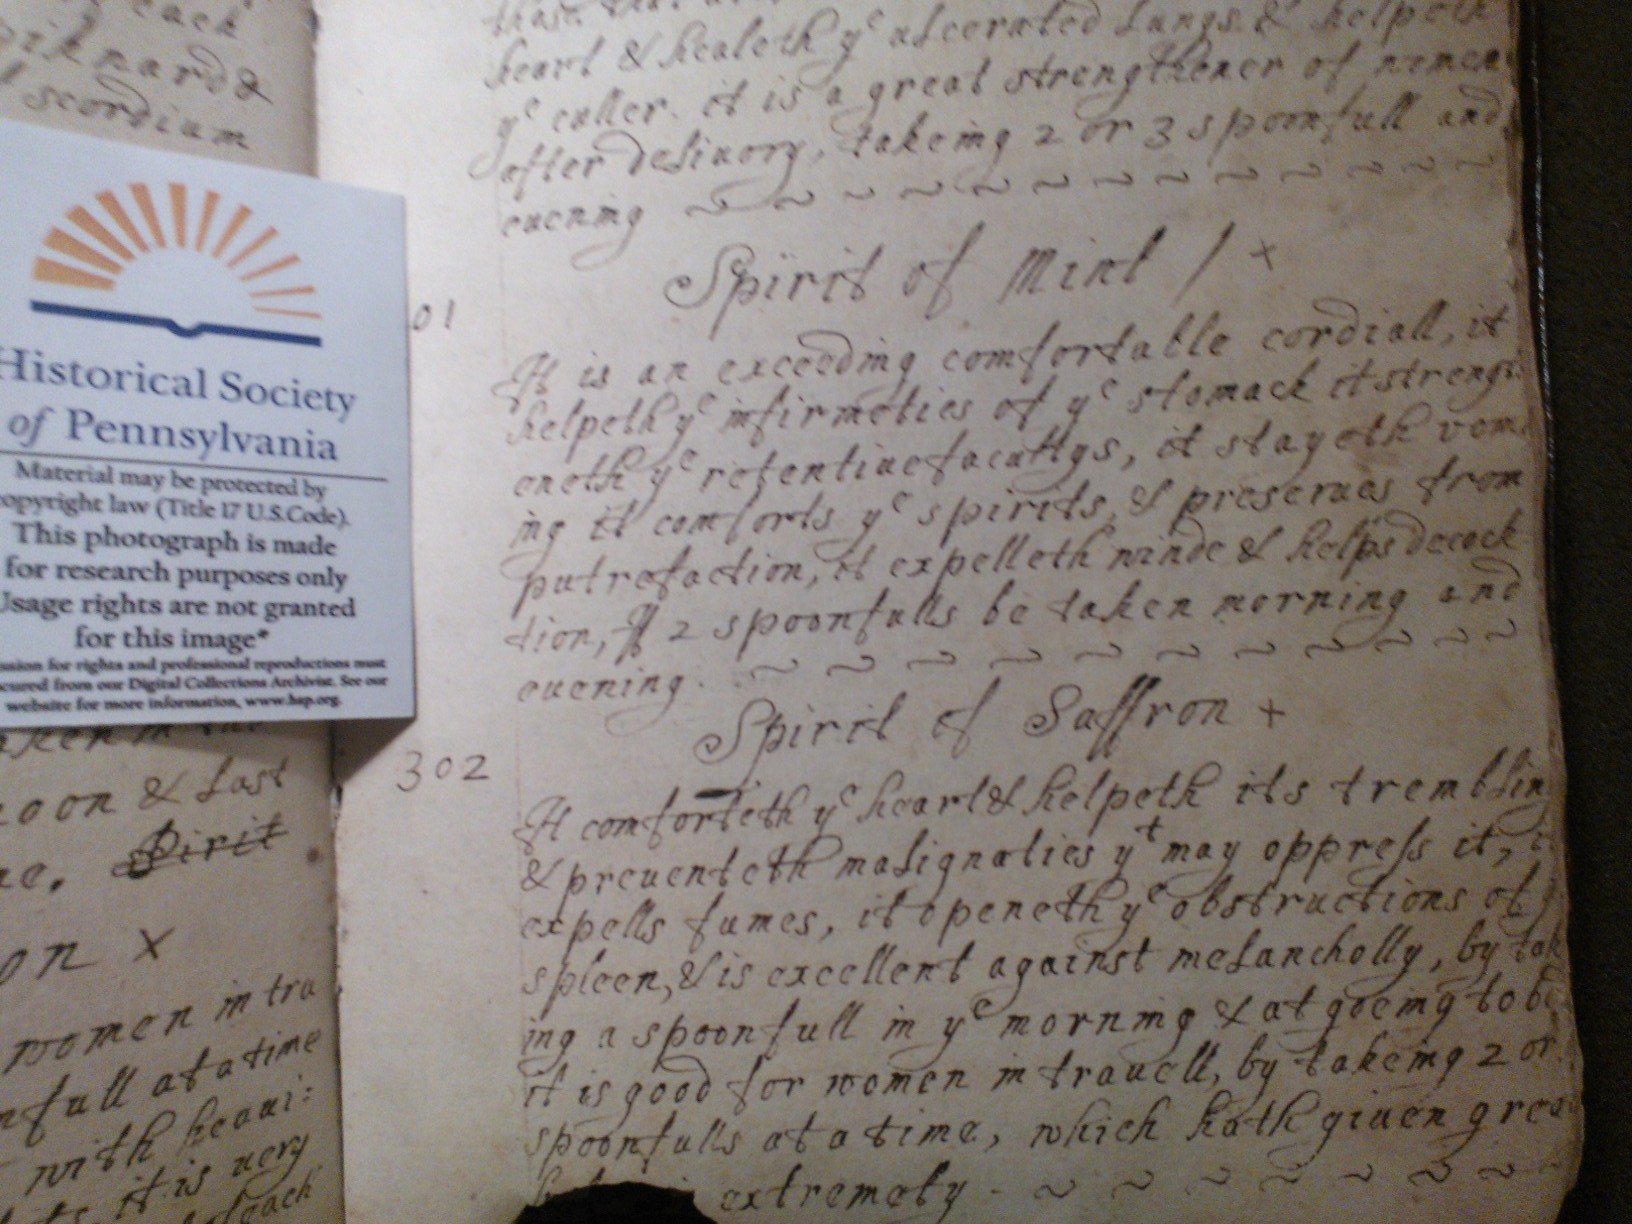 each
piknard &
scordium
Historical Society
of Pennsylvania
Material may be protected by
copyright law (Title 17 U.S.Code).
This photograph is made
for research purposes only
Usage rights are not granted
for this image*
ssion for rights and professional reproductions must
cured from our Digital Collections Archivist. See our
website for more information, www.hsp.org.
oon & last
ne. Spirit
on x
women in tra
nfull at a time
with heavi:
it is uery
those that
heart & healeth yᵉ ulcerated Lungs. & helpeth
yᵉ culler. it is a great strengthener of women
after deliuory, takeing 2 or 3 spoonfull and
euening ~ ~ ~ ~ ~ ~ ~ ~ ~ ~ ~ ~
Spirit of Mint / x
01
It is an exceeding comfortable cordiall, it
helpeth yᵉ infirmeties of yᵉ stomack it strengt
eneth yᵉ retentiue facultys, it stayeth vomi
ing it comforts yᵉ spirits, & preserues from
putrefaction, it expelleth winde & helps decock
tion, If 2 spoonfulls be taken morning and
euening. ~ ~ ~ ~ ~ ~ ~ ~ ~ ~
Spirit of Saffron +
302
It comforteth yᵉ heart & helpeth its tremblin
& preuenteth malignaties yᵗ may oppress it, i
expells fumes, it openeth yᵉ obstructions of y
spleen, & is excellent against melancholly, by tak
ing a spoonfull in yᵉ morning & at goeing to be
it is good for women in trauell, by takeing 2 or
spoonfulls at a time, which hath giuen grea
extremety - ~ ~ ~ ~ ~ ~